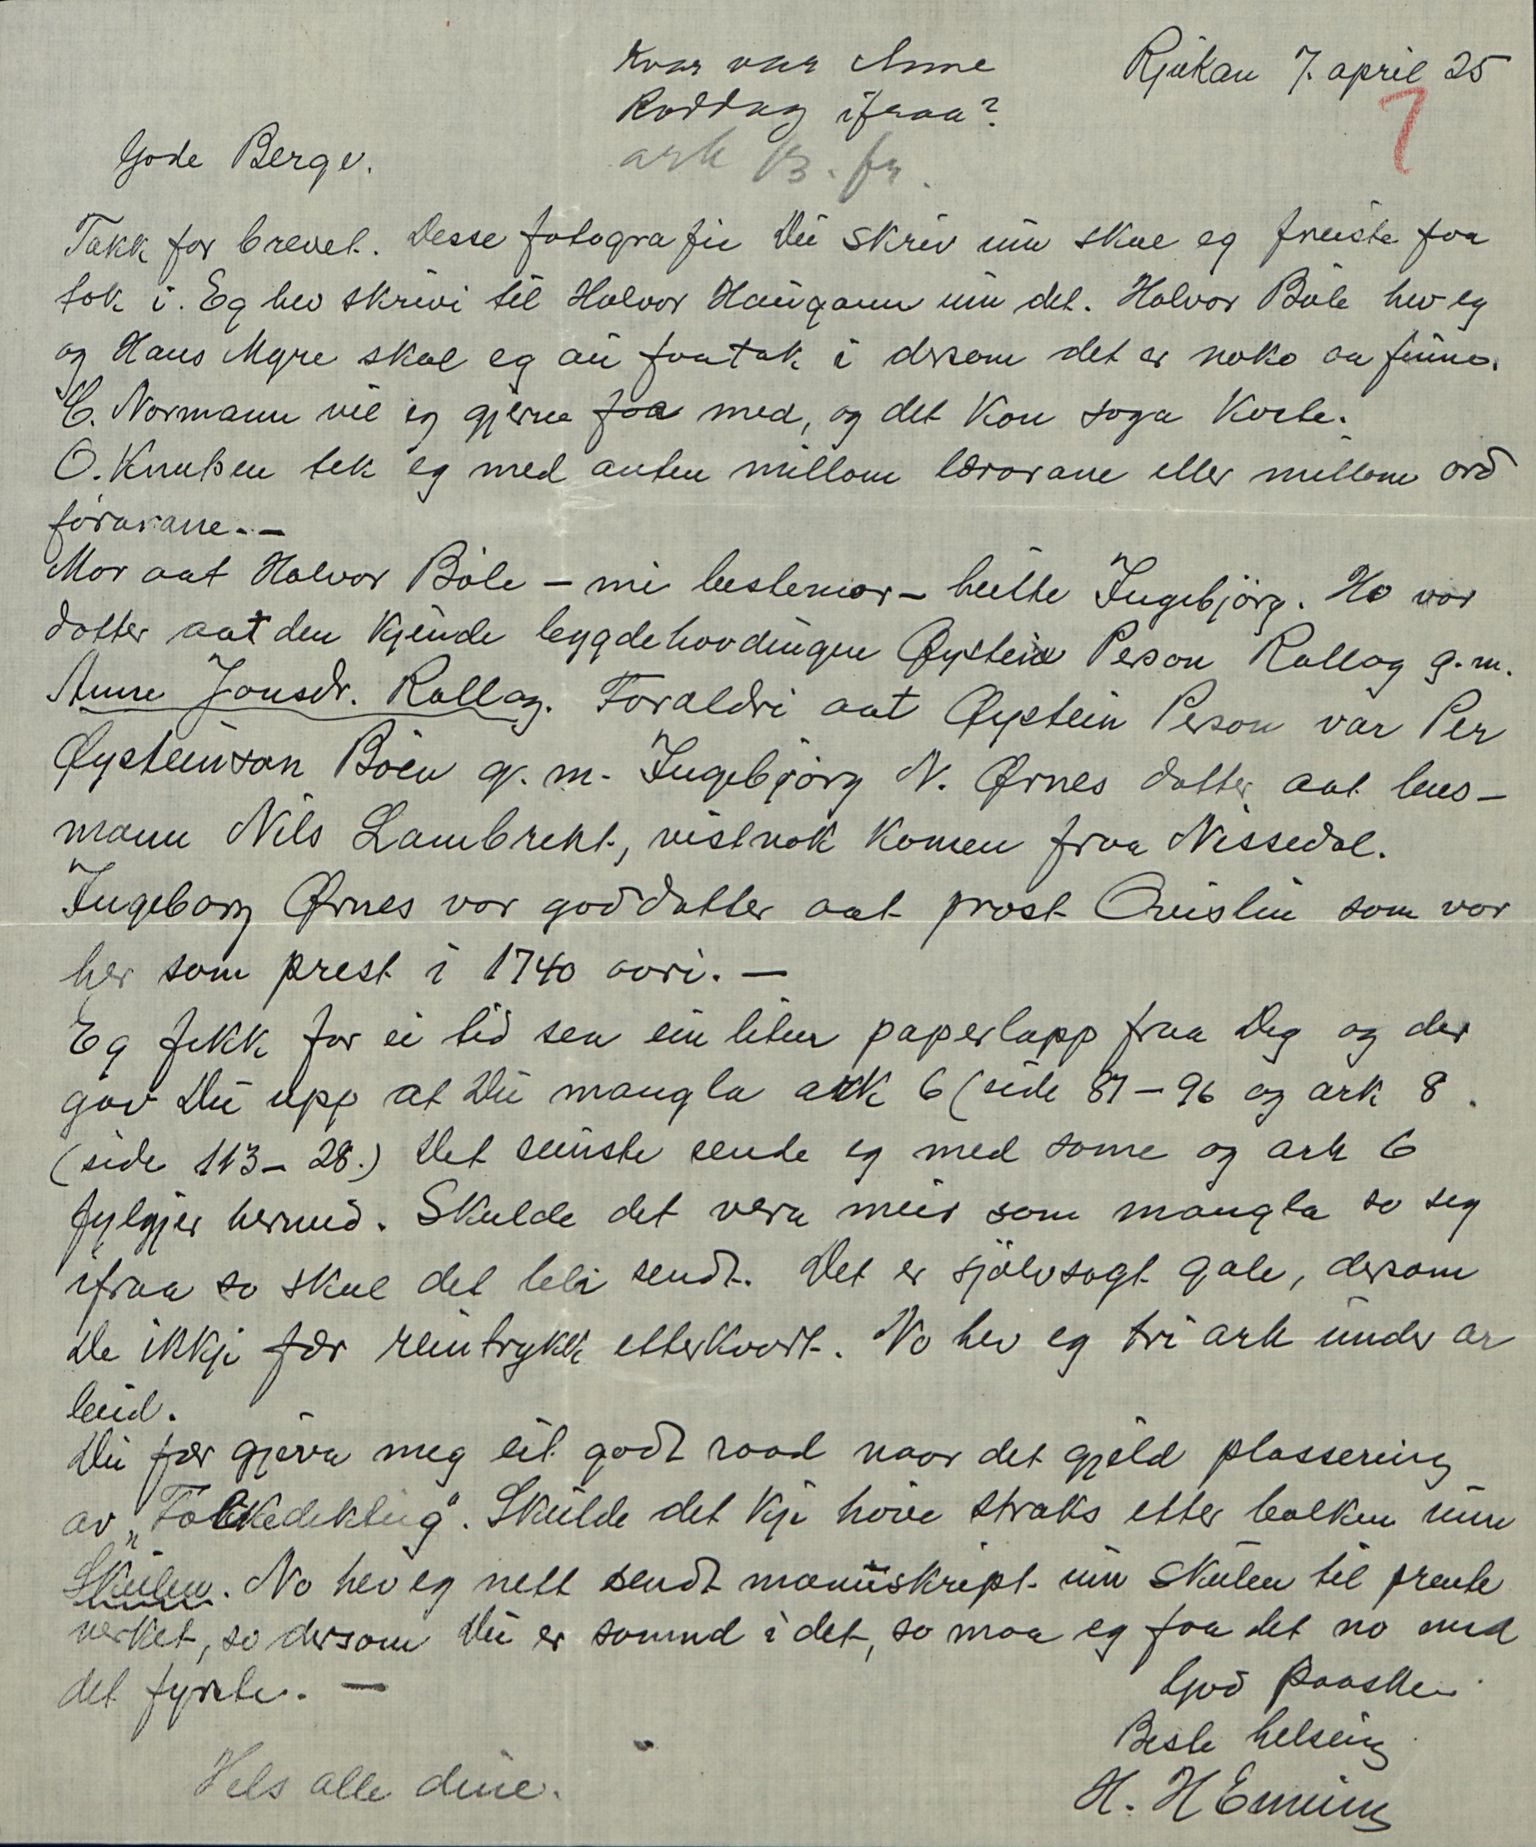 Kvar var Anne
Roddag ifraa?
ark 13. fr.
Rjukan 7. april 25
7
Gode Berge.
Takk for brevet. Desse fotografie Du skriv um skal eg freiste faa
tok i. Eg hev skrivi til Halvor Haugann um det. Halvor Bøle hev eg
og Hans Myre skal eg au faa tak i dersom det er noko aa finna.
C. Normann vil eg gjerne faa med, og det kan soga koste.
O. Knutsen tek eg med anten millom lærarane eller millom ord
førarane. -
Mor aat Halvor Bøle - mi bestemor - heitte Ingebjörg. Ho var
dotter aat den kjende bygdehovdingen Øystein Person Rollag g. m.
Anne Jonsdr. Rollag. Foraldri aat Øystein Person var Per
Øysteinson Böen g. m. Ingebjörg N. Ørnes dotter aat lens-
mann Nils Lambrekt, vistnok komen fraa Nissedal.
Ingeborg Ørnes var goddotter aat prost Qvislin som var
her som prest i 1740 aari. -
Eg fekk for ei tid sea ein liten paperlapp fraa Deg og der
gav Du upp at Du mangla ark 6 (side 81-96 og ark 8.
(side 113-28.) Det seinste sende eg med some og ark 6
fylgjer hermed. Skulde det vera meir som mangla so seg
ifraa so skal det bli sendt. Det er sjölvsagt gale, dersom
De ikkje fær reintrykk etterkvart. No hev eg tri ark under ar
beid.
Du fær gjeva meg eit godt raad naar det gjeld plassering
av "Folkedikting". Skulde det kje høve straks etter bolken um
Skulen. No hev eg nett sendt manuskript um skulen til prente
verket, so dersom Du er samd i det, so maa eg faa det no med
det fyrste. -
God Paaske
Beste helsing
H. H Einung
Hels alle dine.